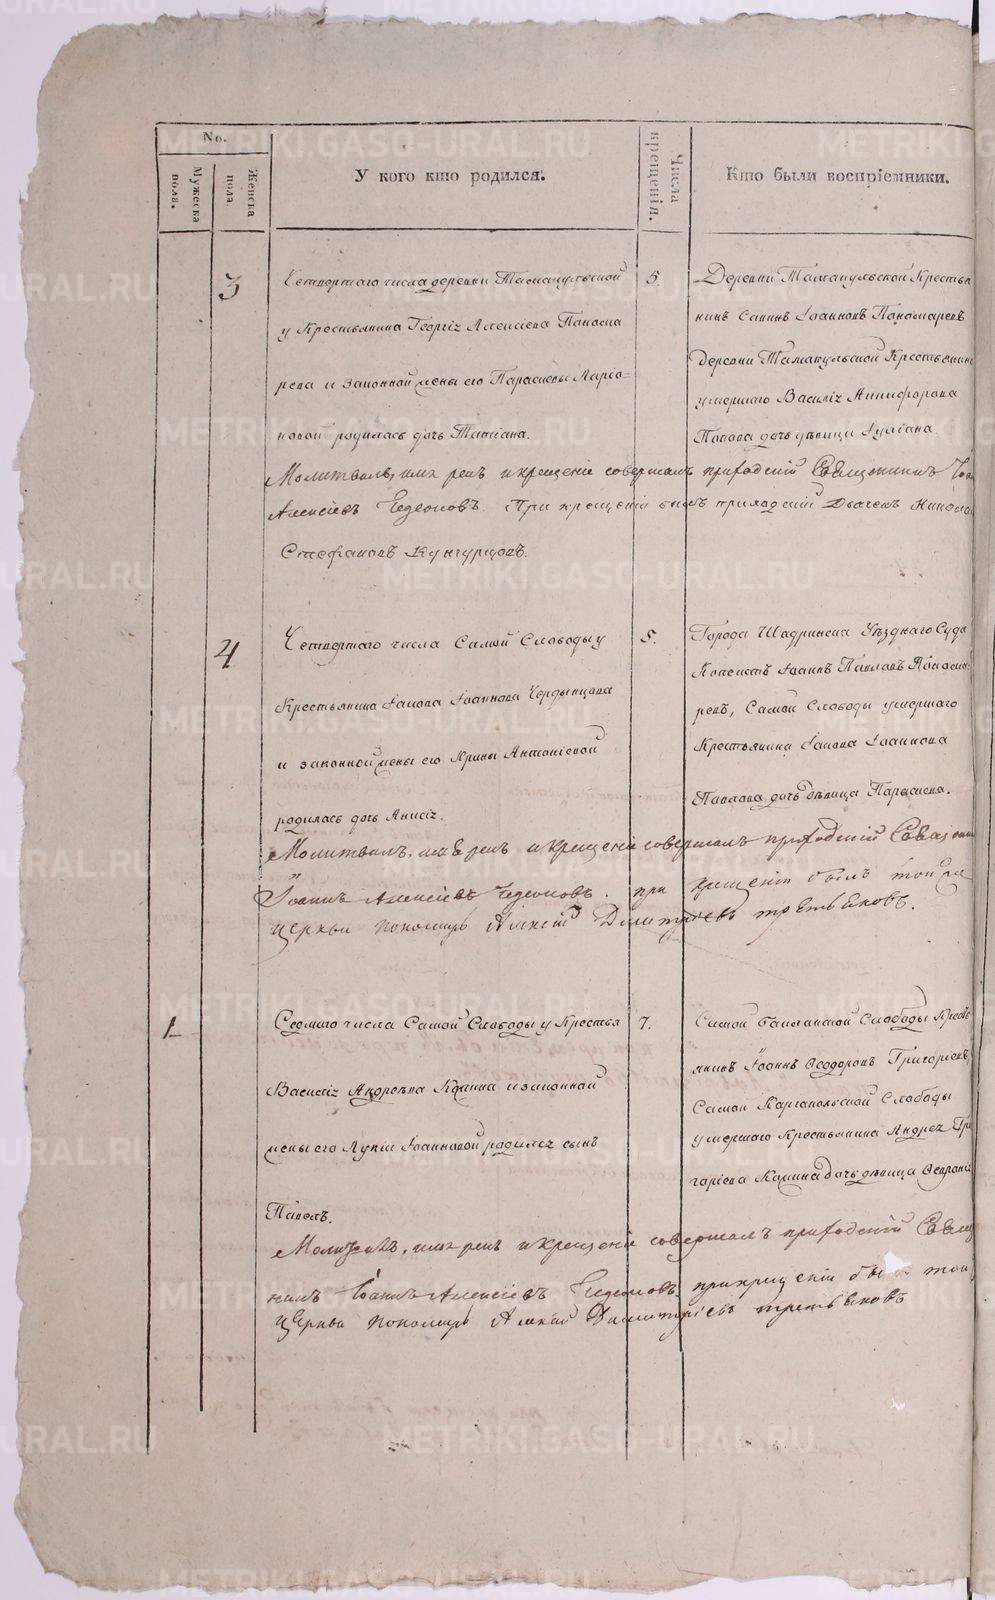 No.
Мужеска пола.
Женска пола.
У кого кто родился.
Числа крещенія.
Кто были воспріемники.
3
Четвертаго числа деревни Тамакульской
у Крестьянина Георгія Алексіева Понома
рева и законной жены его Парасковы Ларіо=
новой родилась дочь Татіана.
5
Деревни Тамакульской Крестья
нинъ Савинъ Іоанновъ Пономаревъ
деревни Тамакульской Крестьянина
умершаго Василія Никифорова
Попова дочь дѣвица Іуліана.
Молитвилъ, имя рекъ и крещеніе совершалъ приходскій Священникъ Іоан
Алексіевъ Гедеоновъ. При крещеніи былъ приходскій Дьячекъ Никола
Стефановъ Кунгурцовъ.
4
Четвертаго числа Самой Слободы у
Крестьянина Іакова Іоаннова Чердынцова
и законной жены его Ирины Антоніевой
родилась дочь Анисія.
5.
Города Шадринска Уѣзднаго Суда
Копеистъ Іоаннъ Павловъ Понома
ревъ, Самой Слободы умершаго
Крестьянина Іакова Іоаннова
Павлова дочь дѣвица Параскева.
Молитвилъ, имя рекъ и крещеніе совершалъ приходскій Священни
Іоаннъ Алексіевъ Гедеоновъ. при крещеніи былъ той же
церкви пономарь Алексій Димитріевъ третьяковъ.
1
Седмаго числа Самой Слободы у Крестья
Василія Андреева Калина и законной
жены его Лукіи Іоанновой родился сынъ
Павелъ.
7.
Самой Слободы Крестья
янинъ Іоаннъ Ѳеодоровъ Григоріевъ,
Самой Каргапольской Слободы
умершаго Крестьянина Андрея Гри
горіева Калина дочь дѣвица Ѳевронія
Молитвилъ, имя рекъ и крещеніе совершалъ приходскій Свящ
никъ Іоаннъ Алексіевъ Гедеоновъ. при крещеніи былъ той
Церкви пономарь Алексій Димитріевъ третьяковъ
METRIKI.GASO-URAL.RU